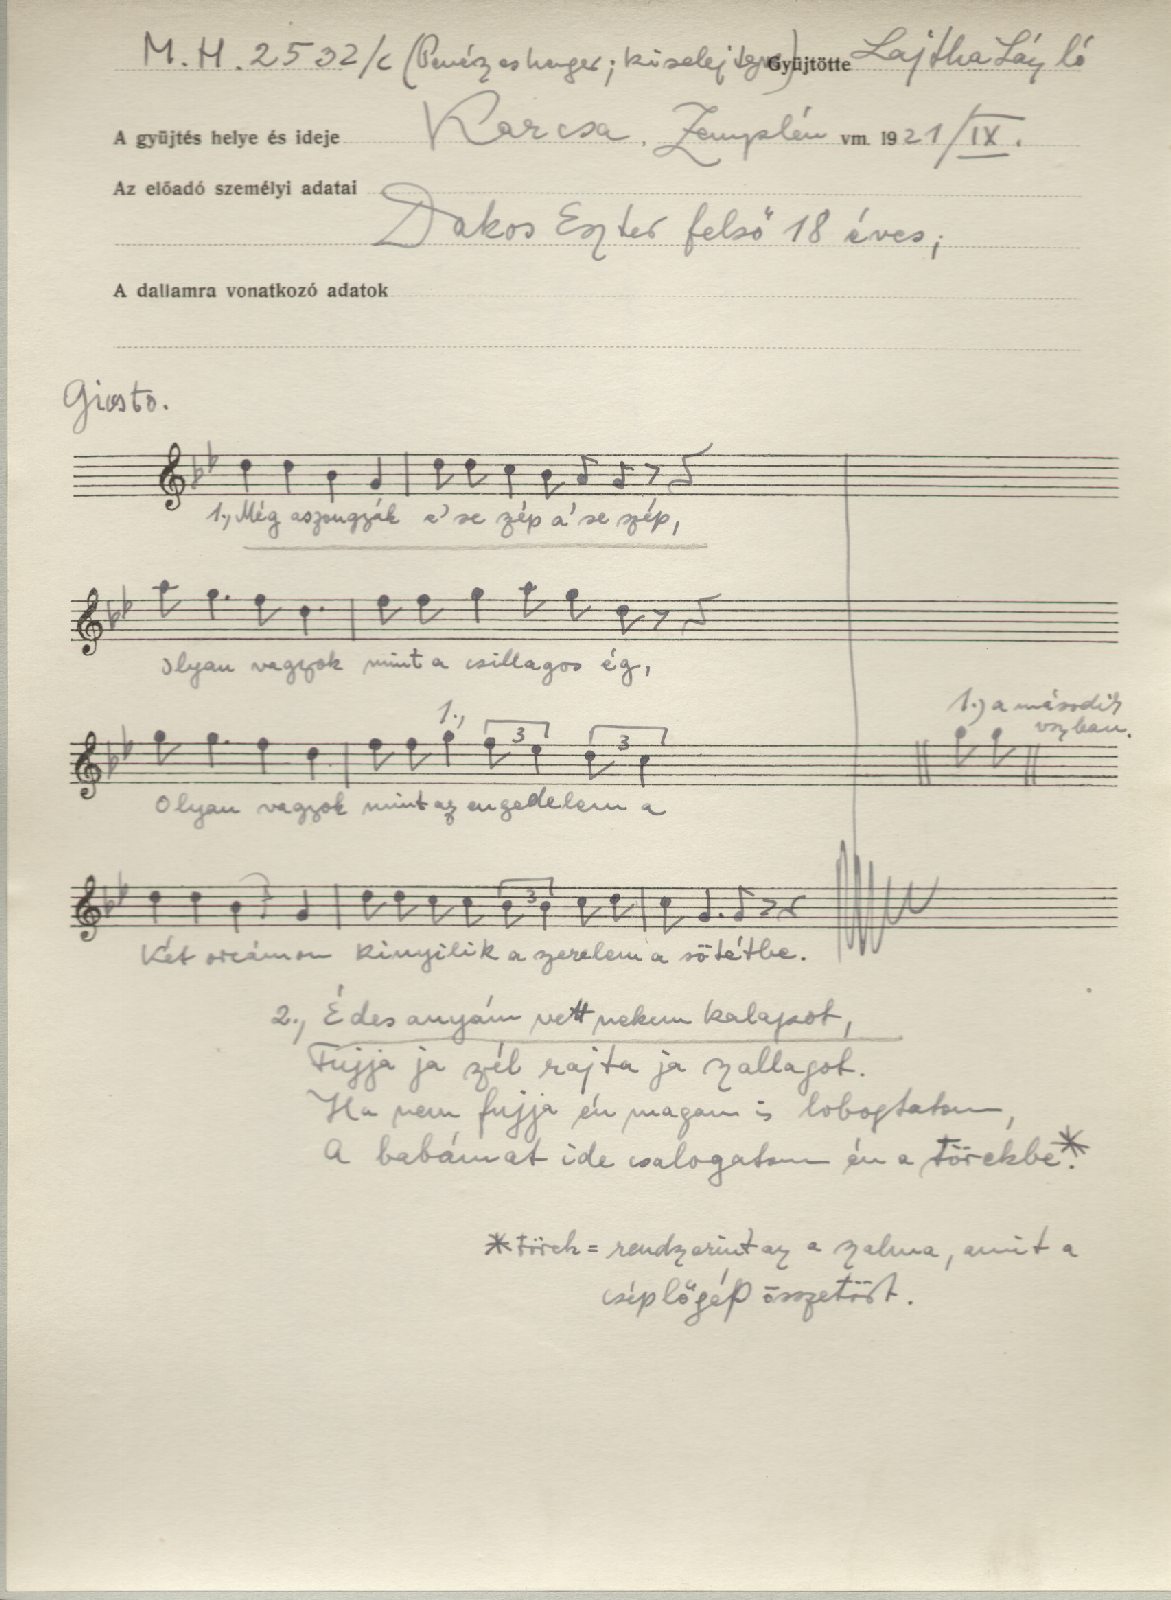 M.H. 2532/c (Penészes henger; kiselejtezve) Gyűjtötte Lajtha László
A gyűjtés helye és ideje Karcsa, Zemplén vm. 1921/IX.
Az előadó személyi adatai
Dakos Eszter felső 18 éves;
A dallamra vonatkozó adatok
Giusto.
1., Még aszongyák e' se szép a' se szép,
olyan vagyok mint a csillagos ég,
1., 3 3 1.) a második vszban.
Olyan vagyok mint az engedelem a
3
Két orcámon kinyilik a zerelem a sötétbe.
2., Édesanyám vett nekem kalapot,
Fujja ja szél rajta ja zallagot.
Ha nem fujja én magam is lobogtatom,
A babámat ide csalogatom én a törekbe.*
* törek = rendszerint az a zalma, amit a
cséplőgép összetört.